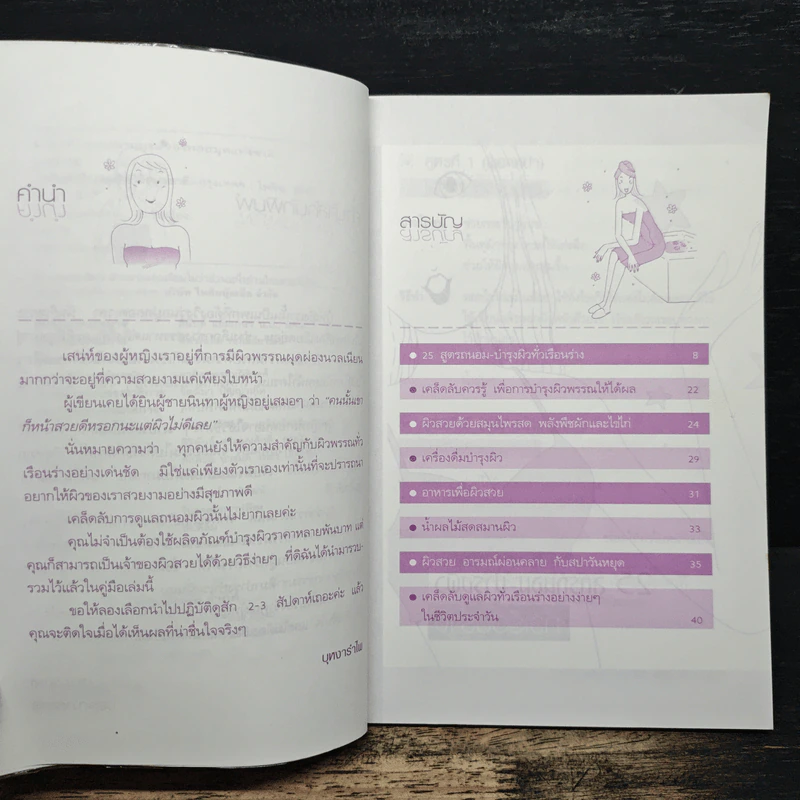 คำนำ
เสน่ห์ของผู้หญิงเราอยู่ที่การมีผิวพรรณผุดผ่องนวลเนียน
มากกว่าจะอยู่ที่ความสวยงามแค่เพียงใบหน้า
ผู้เขียนเคยได้ยินผู้ชายนินทาผู้หญิงอยู่เสมอๆ ว่า "คนนั้นเขา
ก็หน้าสวยดีหรอกนะแต่ผิวไม่ดีเลย"
นั่นหมายความว่า ทุกคนยังให้ความสำคัญกับผิวพรรณทั่ว
เรือนร่างอย่างเด่นชัด มิใช่แค่เพียงตัวเราเองเท่านั้นที่จะปรารถนา
อยากให้ผิวของเราสวยงามอย่างมีสุขภาพดี
เคล็ดลับการดูแลถนอมผิวนั้นไม่ยากเลยค่ะ
คุณไม่จำเป็นต้องใช้ผลิตภัณฑ์บำรุงผิวราคาหลายพันบาท แต่
คุณก็สามารถเป็นเจ้าของผิวสวยได้ด้วยวิธีง่ายๆ ที่ดิฉันได้นำมารวบ-
รวมไว้แล้วในคู่มือเล่มนี้
ขอให้ลองเลือกนำไปปฏิบัติดูสัก 2-3 สัปดาห์เถอะค่ะ แล้ว
คุณจะติดใจเมื่อได้เห็นผลที่น่าชื่นใจจริงๆ
บุหงารำไพ
สารบัญ
25 สูตรถนอม-บำรุงผิวทั่วเรือนร่าง 8
เคล็ดลับควรรู้ เพื่อการบำรุงผิวพรรณให้ได้ผล 22
ผิวสวยด้วยสมุนไพรสด พลังพืชผักและไข่ไก่ 24
เครื่องดื่มบำรุงผิว 29
อาหารเพื่อผิวสวย 31
น้ำผลไม้สดสมานผิว 33
ผิวสวย อารมณ์ผ่อนคลาย กับสปาวันหยุด 35
เคล็ดลับดูแลผิวทั่วเรือนร่างอย่างง่ายๆ
ในชีวิตประจำวัน 40